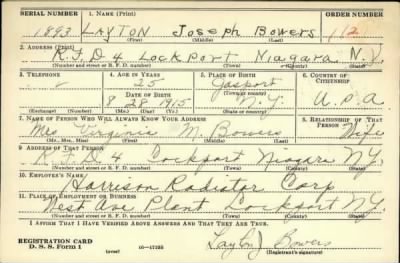 SERIAL NUMBER 1. NAME (Print) ORDER NUMBER
1883 LAYTON Joseph Bowers 112
(First) (Middle) (Last)
2. ADDRESS (Print)
R.F.D 4 Lockport Niagara N.Y.
(Number and street or R. F. D. number) (Town) (County) (State)
3. TELEPHONE 4. AGE IN YEARS 5. PLACE OF BIRTH 6. COUNTRY OF CITIZENSHIP
25 Gasport
DATE OF BIRTH (Town or county)
8 28 1915 N.Y. U.S.A
(Exchange) (Number) (Mo.) (Day) (Yr.) (State or country)
7. NAME OF PERSON WHO WILL ALWAYS KNOW YOUR ADDRESS 8. RELATIONSHIP OF THAT PERSON
Mrs Virginia M. Bowers Wife
(Mr., Mrs., Miss) (First) (Middle) (Last)
9. ADDRESS OF THAT PERSON
R.F.D 4 Lockport Niagara N.Y.
(Number and street or R. F. D. number) (Town) (County) (State)
10. EMPLOYER'S NAME
Harrison Radiator Corp
11. PLACE OF EMPLOYMENT OR BUSINESS
West Ave Plant Lockport N.Y.
(Number and street or R. F. D. number) (Town) (County) (State)
I AFFIRM THAT I HAVE VERIFIED ABOVE ANSWERS AND THAT THEY ARE TRUE.
REGISTRATION CARD
D. S. S. FORM 1 (over) 16—17105 Layton J Bowers
(Registrant's signature)